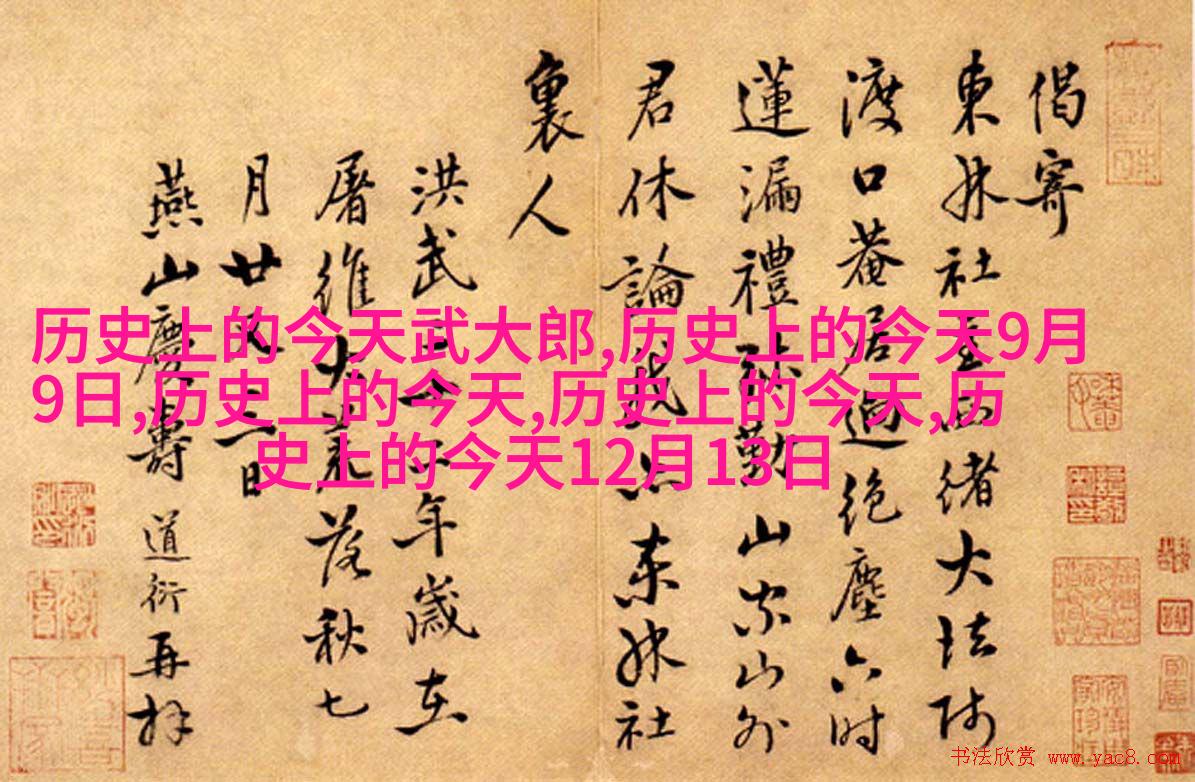 偈寄
東林社緒大法師
渡口菴居迥絕塵六時
蓮漏禮勤山家山外
君休論我是東林社
裏人
洪武年歲在
屠維大荒落秋七
月廿一日
燕山慶壽道衍再拜
历史上的今天武大郎,历史上的今天9月
9日,历史上的今天,历史上的今天,历
史上的今天12月13日
书法欣赏 www.yac8.com